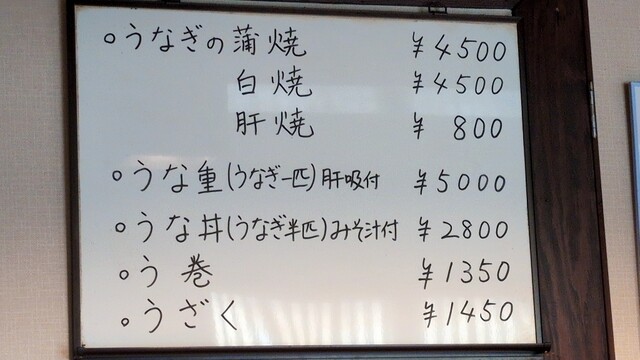 ○うなぎの蒲焼 ¥4500
白焼 ¥4500
肝焼 ¥800
○うな重(うなぎ一匹)肝吸付 ¥5000
○うな丼(うなぎ半匹)みそ汁付 ¥2800
○う巻 ¥1350
○うざく ¥1450